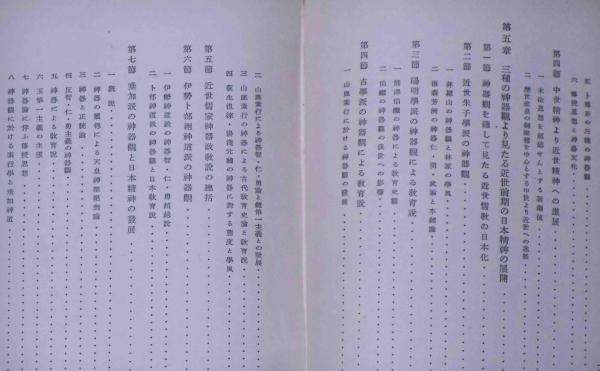 五 卜部家の三種の神器觀
六 傳授思想と神器文學
第四節 中世精神より近世精神への進展
一 末法思想を超越せんとする新潮流
第五章 三種の神器觀より見たる近世前期の日本精神の展開
第一節 神器觀を通して見た近世儒教の日本化
第二節 近世朱子學派の神器觀
一 林羅山の神器觀と林家の學風
二 雨森芳洲の神器仁・明・武論と本體論
第三節 陽明學派の神器觀による教育說
一 熊澤伯繼の神器による教育史觀
二 伯繼の神器觀の後世への影響
第四節 古學派の神器觀による教育說
一 山鹿素行に於ける神器觀の發展
二 山鹿素行による神器智・仁・勇論と鏡第一主義との發展
三 山鹿素行の神器による古代教育史論と教育說
四 荻生徂徠・湯淺元禎の神器に對する態度と學風
第五節 近世儒家神器政教說の總括
第六節 伊勢卜部兩神道派の神器觀
一 伊勢神道說の神器智・仁・勇超越說
二 卜部神道說の神器觀と日本教育說
第七節 垂加派の神器觀と日本精神の發展
一 敍說
二 神器の選修による天皇神聖絕對論
三 神器と正統論
四 反智・仁・勇主義の神器觀
五 神器による教育說
六 玉第一主義の主張
七 神器論に伴ふ傳授思想
八 神器觀に於ける素行學と垂加神道